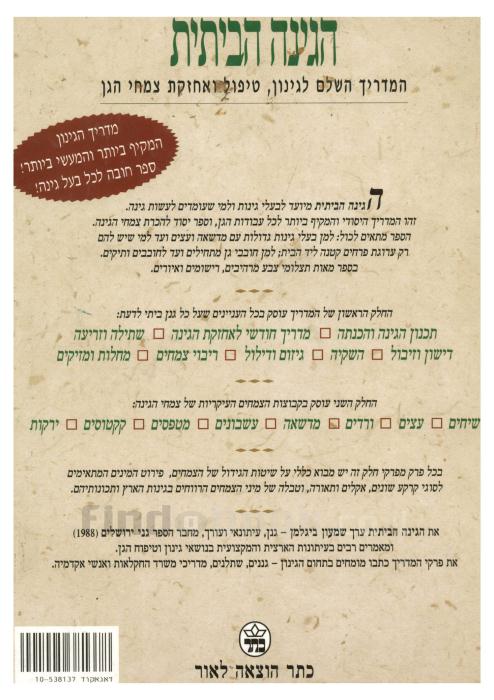 הגינה הביתית
המדריך השלם לגינון, טיפול ואחזקת צמחי הגן
מדריך הגינון
המקיף ביותר והמעשי ביותר!
ספר חובה לכל בעל גינה!
הגינה הביתית מיועד לבעלי גינות ולמי שעומדים לעשות גינה.
זהו המדריך היסודי והמקיף ביותר לכל עבודות הגן, וספר יסוד להכרת צמחי הגינה.
הספר מתאים לכול: למן בעלי גינות גדולות עם מדשאה ועצים ועד למי שיש להם
רק ערוגת פרחים קטנה ליד הבית; למן חובבי גן מתחילים ועד לחובבים ותיקים.
בספר מאות תצלומי צבע מרהיבים, רישומים ואיורים.
החלק הראשון של המדריך עוסק בכל העניינים שעל כל גנן ביתי לדעת:
תכנון הגינה והכנתה □ מדריך חודשי לאחזקת הגינה □ שתילה וזריעה
דישון וזיבול □ השקיה □ גיזום ודילול □ ריבוי צמחים □ מחלות ומזיקים
החלק השני עוסק בקבוצות הצמחים העיקריות של צמחי הגינה:
שיחים □ עצים □ ורדים □ מדשאה □ עשבונים □ מטפסים □ קקטוסים □ ירקות
בכל פרק מפרקי חלק זה יש מבוא כללי על שיטות הגידול של הצמחים, פירוט המינים המתאימים
לסוגי קרקע שונים, אקלים ותאורה, וטבלה של מיני הצמחים הרווחים בגינות הארץ ותכונותיהם.
את הגינה הביתית ערך שמעון ביגלמן – גנן, עיתונאי ועורך, מחבר הספר גני ירושלים (1988)
ומאמרים רבים בעיתונות הארצית והמקצועית בנושאי גינון וטיפוח הגן.
את פרקי המדריך כתבו מומחים בתחום הגינון – גננים, שתלנים, מדריכי משרד החקלאות ואנשי אקדמיה.
כתר
כתר הוצאה לאור
דאנאקוד 10-538137